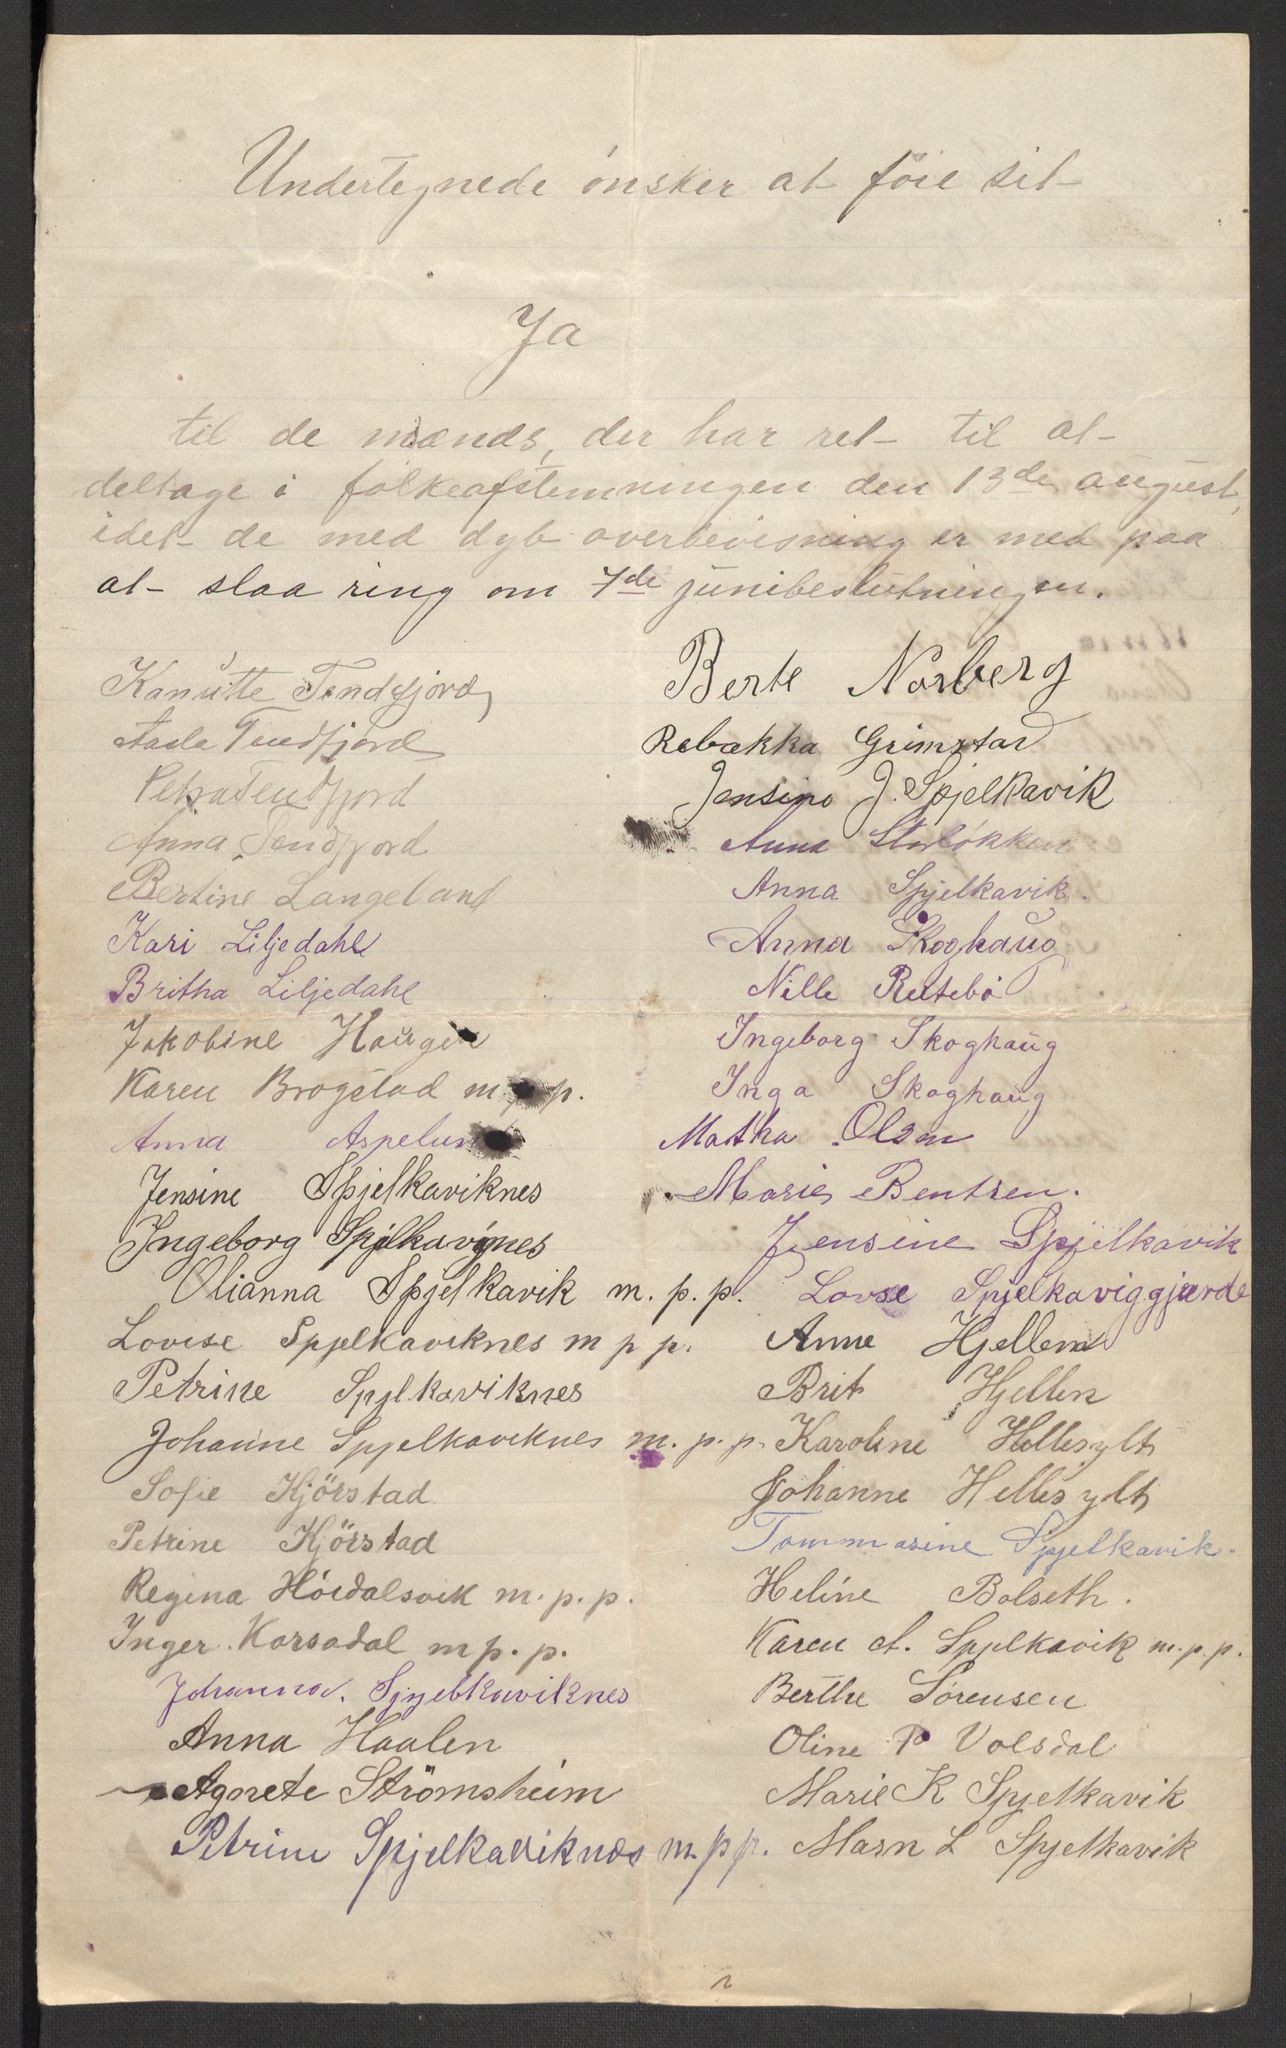 Undertegnede önsker at föie sit
Ja
til de mænds, der har ret til at
deltage i folkeafstemningen den 13de august,
idet de med dyb overbevisning er med paa
at slaa ring om 7de junibeslutningen.
Kanutte Tendfjord
Aasta Tendfjord
Petra Tendfjord
Anna Tendfjord
Bertine Langeland
Kari Liljedahl
Britha Liljedahl
Jakobine Haugen
Karen Brogstad m.p.p.
Anna Aspelund
Jensine Spjelkaviknes
Ingeborg Spjelkavignes
Olianna Spjelkavik m.p.p.
Lovise Spjelkaviknes m p p.
Petrine Spjlkaviknes
Johanne Spjelkaviknes m.p.p.
Sofie Kjörstad
Petrine Kjörstad
Regina Höidalsvik m.p.p.
Inger Korsadal m p.p.
Johanna. Spjelkaviknes
Anna Haalen
Agnete Strömsheim
Petrine Spjelkaviknes m.p.p.
Berte Norberg
Rebakka Grimstad
Jensine J. Spjelkavik
Anna Storlökken
Anna Spjelkavik.
Anna Skoghaug
Nille Rutebö
Ingeborg Skoghaug
Inga Skoghaug
Matha Olsen
Marie Bentsen.
Jensine Spjelkavik
Lovse Spjelkaviggjærde
Anne Hjellen
Brit Hjellen
Karoline Hellesylt
Johanne Hellesylt
Tommasine Spjelkavik.
Heline Bolseth.
Karen A. Spjelkavik m.p.p.
Berthe Sörensen
Oline P Volsdal
Marie K Spjelkavik
Marn L Spjelkavik